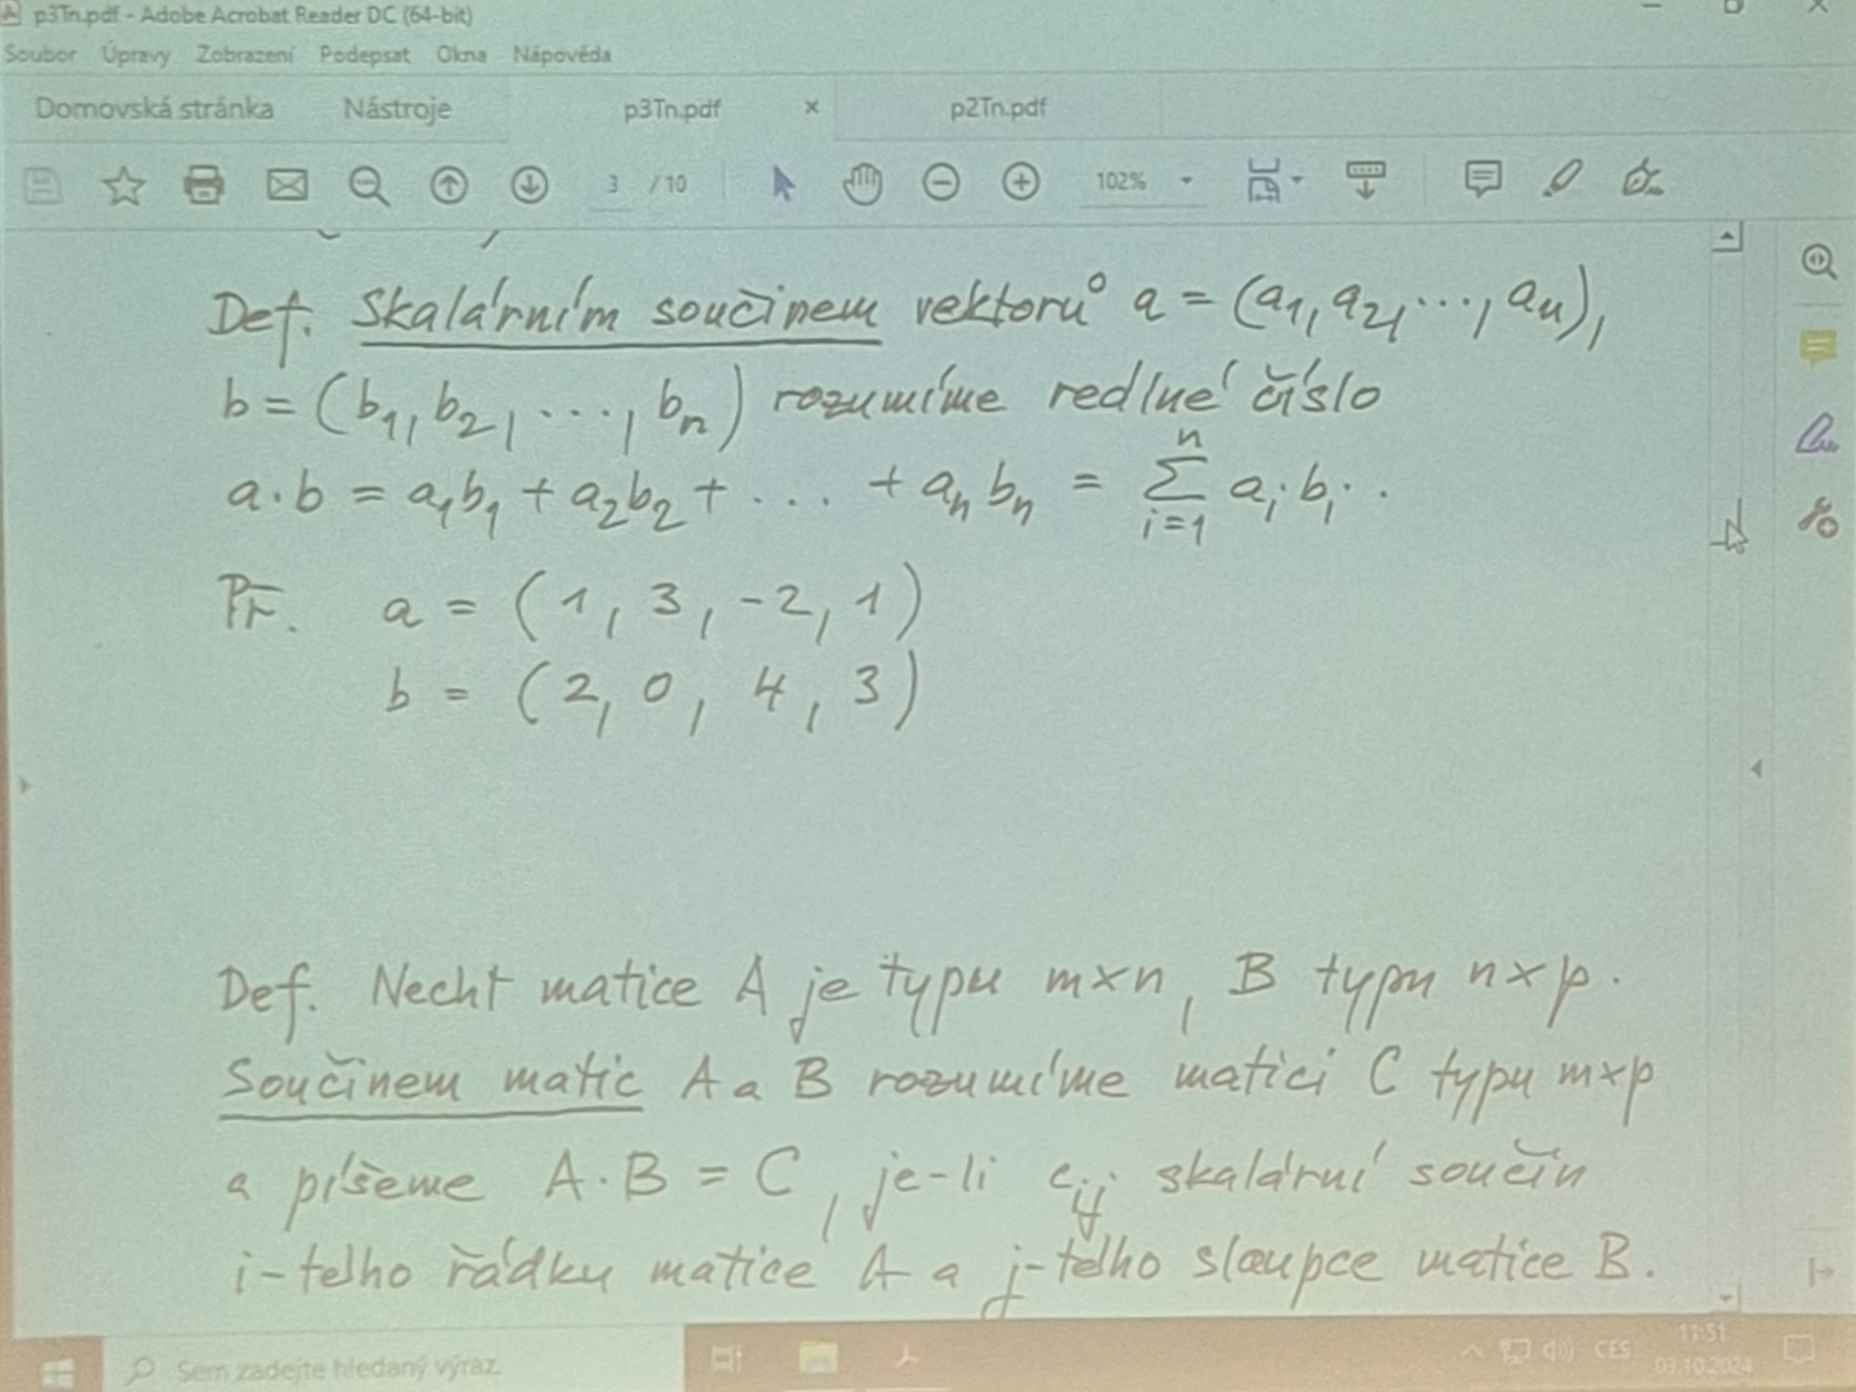 p3Tn.pdf - Adobe Acrobat Reader DC (64-bit)
Soubor Úpravy Zobrazení Podepsat Okna Nápověda
Domovská stránka Nástroje p3Tn.pdf × p2Tn.pdf
3 / 10 102%
Def. Skalárním součinem vektorů a = (a₁, a₂, ..., aₙ),
b = (b₁, b₂, ..., bₙ) rozumíme reálné číslo
a·b = a₁b₁ + a₂b₂ + ... + aₙbₙ = Σⁿᵢ₌₁ aᵢbᵢ.
Př. a = (1, 3, -2, 1)
b = (2, 0, 4, 3)
Def. Nechť matice A je typu m×n, B typu n×p.
Součinem matic A a B rozumíme matici C typu m×p
a píšeme A·B = C, je-li cᵢⱼ skalární součin
i-tého řádku matice A a j-tého sloupce matice B.
Sem zadejte hledaný výraz. CES 11:51
03.10.2024